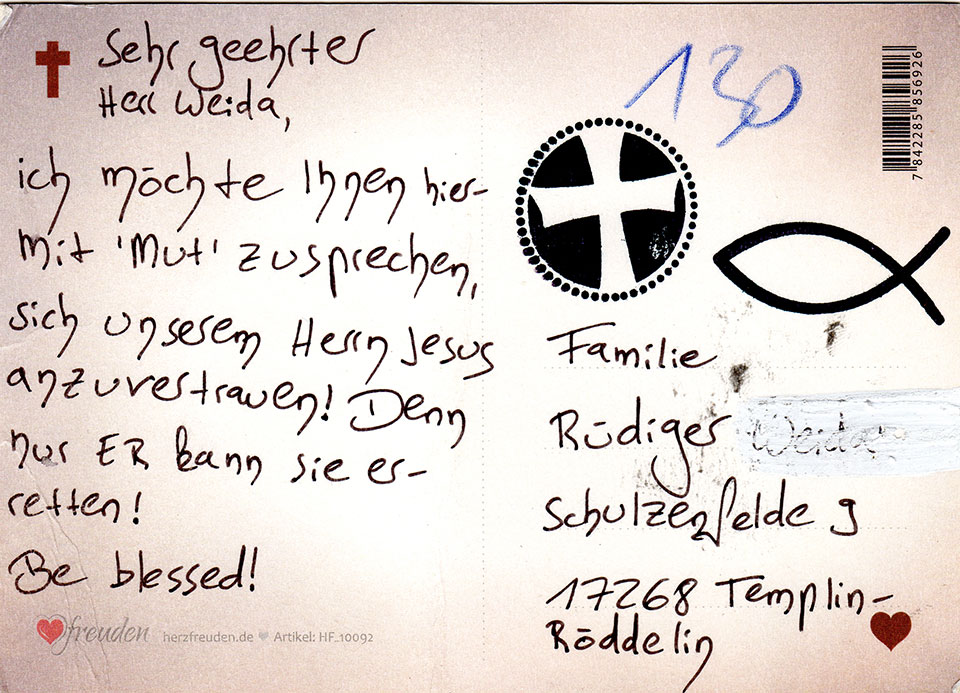 Sehr geehrter
Herr Weida,
ich möchte Ihnen hier-
mit 'Mut' zusprechen,
sich unserem Herrn Jesus
anzuvertrauen! Denn
nur ER kann sie er-
retten!
Be blessed!
freuden herzfreuden.de Artikel: HF_10092
130
7 842285 856926
Familie
Rüdiger Weida
Schulzenfelde 9
17268 Templin-
Röddelin